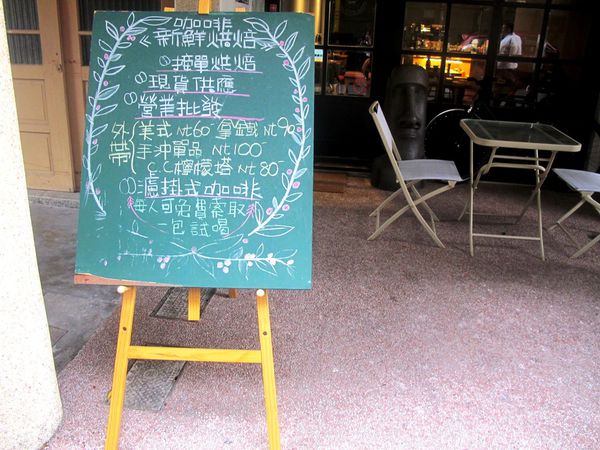 咖啡
《新鮮烘焙
①接單烘焙
②現貨供應
③營業批發
外帶
美式 NT60 拿鐵 NT90
手沖單品 NT100
C.C檸檬塔 NT80
①濾掛式咖啡
每人可免費索取
一包試喝